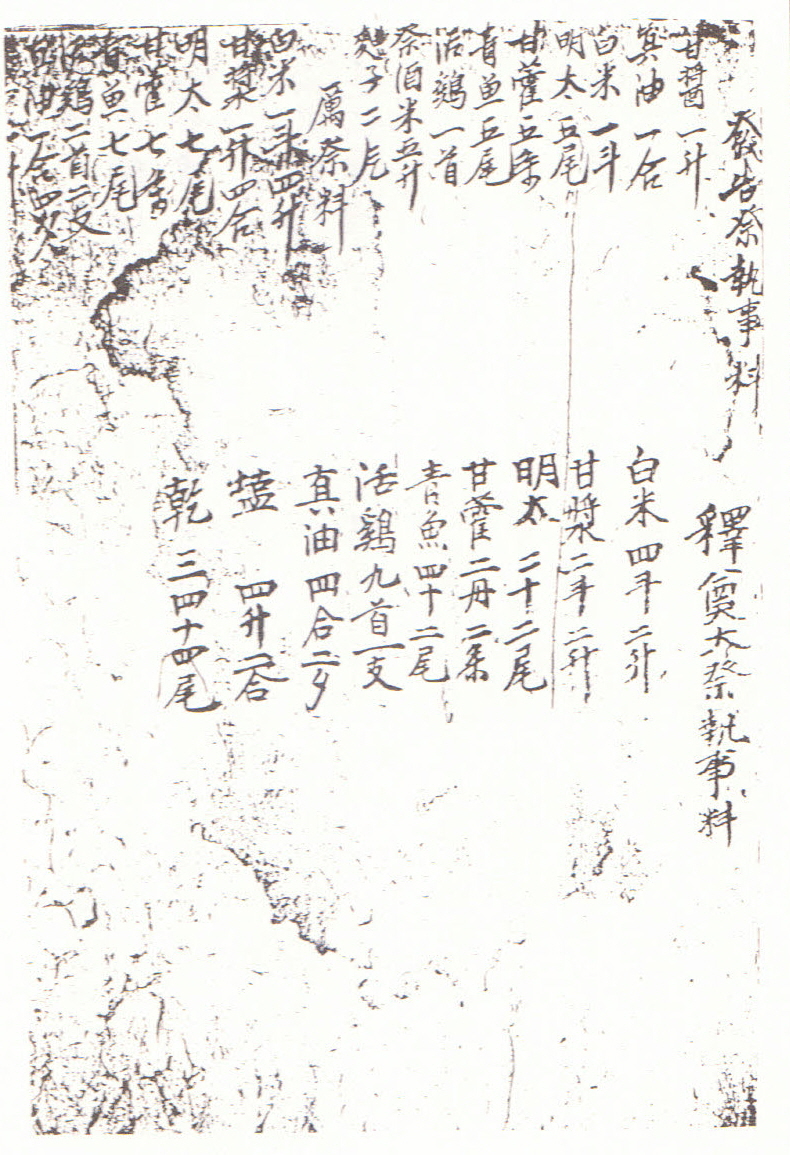 發告祭執事料
甘醬一升
真油一合
白米一斗
明太五尾
甘藿五条
青魚五尾
活鷄一首
祭酒米五升
麯子二元
厲祭料
白米一斗四升
甘漿一升四合
明太七尾
甘藿七条
青魚七尾
活鷄二首二支
真油一合四夕
釋奠大祭執事料
白米四斗二升
甘漿二斗二升
明太二十二尾
甘藿二丹二条
青魚四十二尾
活鷄九首一支
真油四合二夕
塩 四升二合
乾 三四十四尾